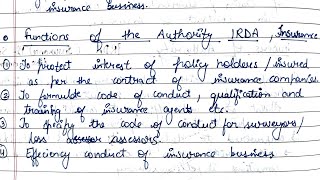 insurance business.
Functions of the Authority IRDA insurance
① To protect interest of policy holders / insured
as per the contract of insurance companies.
② To formulate code of conduct, qualification and
training of insurance agents etc.
③ To specify the code of conduct for surveyors/
loss assessors.
④ Efficiency conduct of insurance business